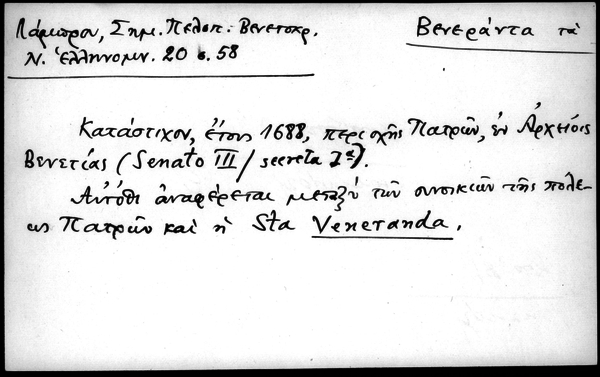 Λάμπρου, Σημ. Πελοπ. Βενετοκρ.
Ν. Ἑλληνομν. 20 σ. 58
Βενεράντα τὰ
Κατάστιχον, ἔτους 1688, περιοχῆς Πατρῶν, ἐν Ἀρχείοις
Βενετίας (Senato III / secreta
Αὐτόθι ἀναφέρεται μεταξὺ τῶν συνοικιῶν τῆς πόλε-
ως Πατρῶν καὶ ἡ Sta Veneranda.